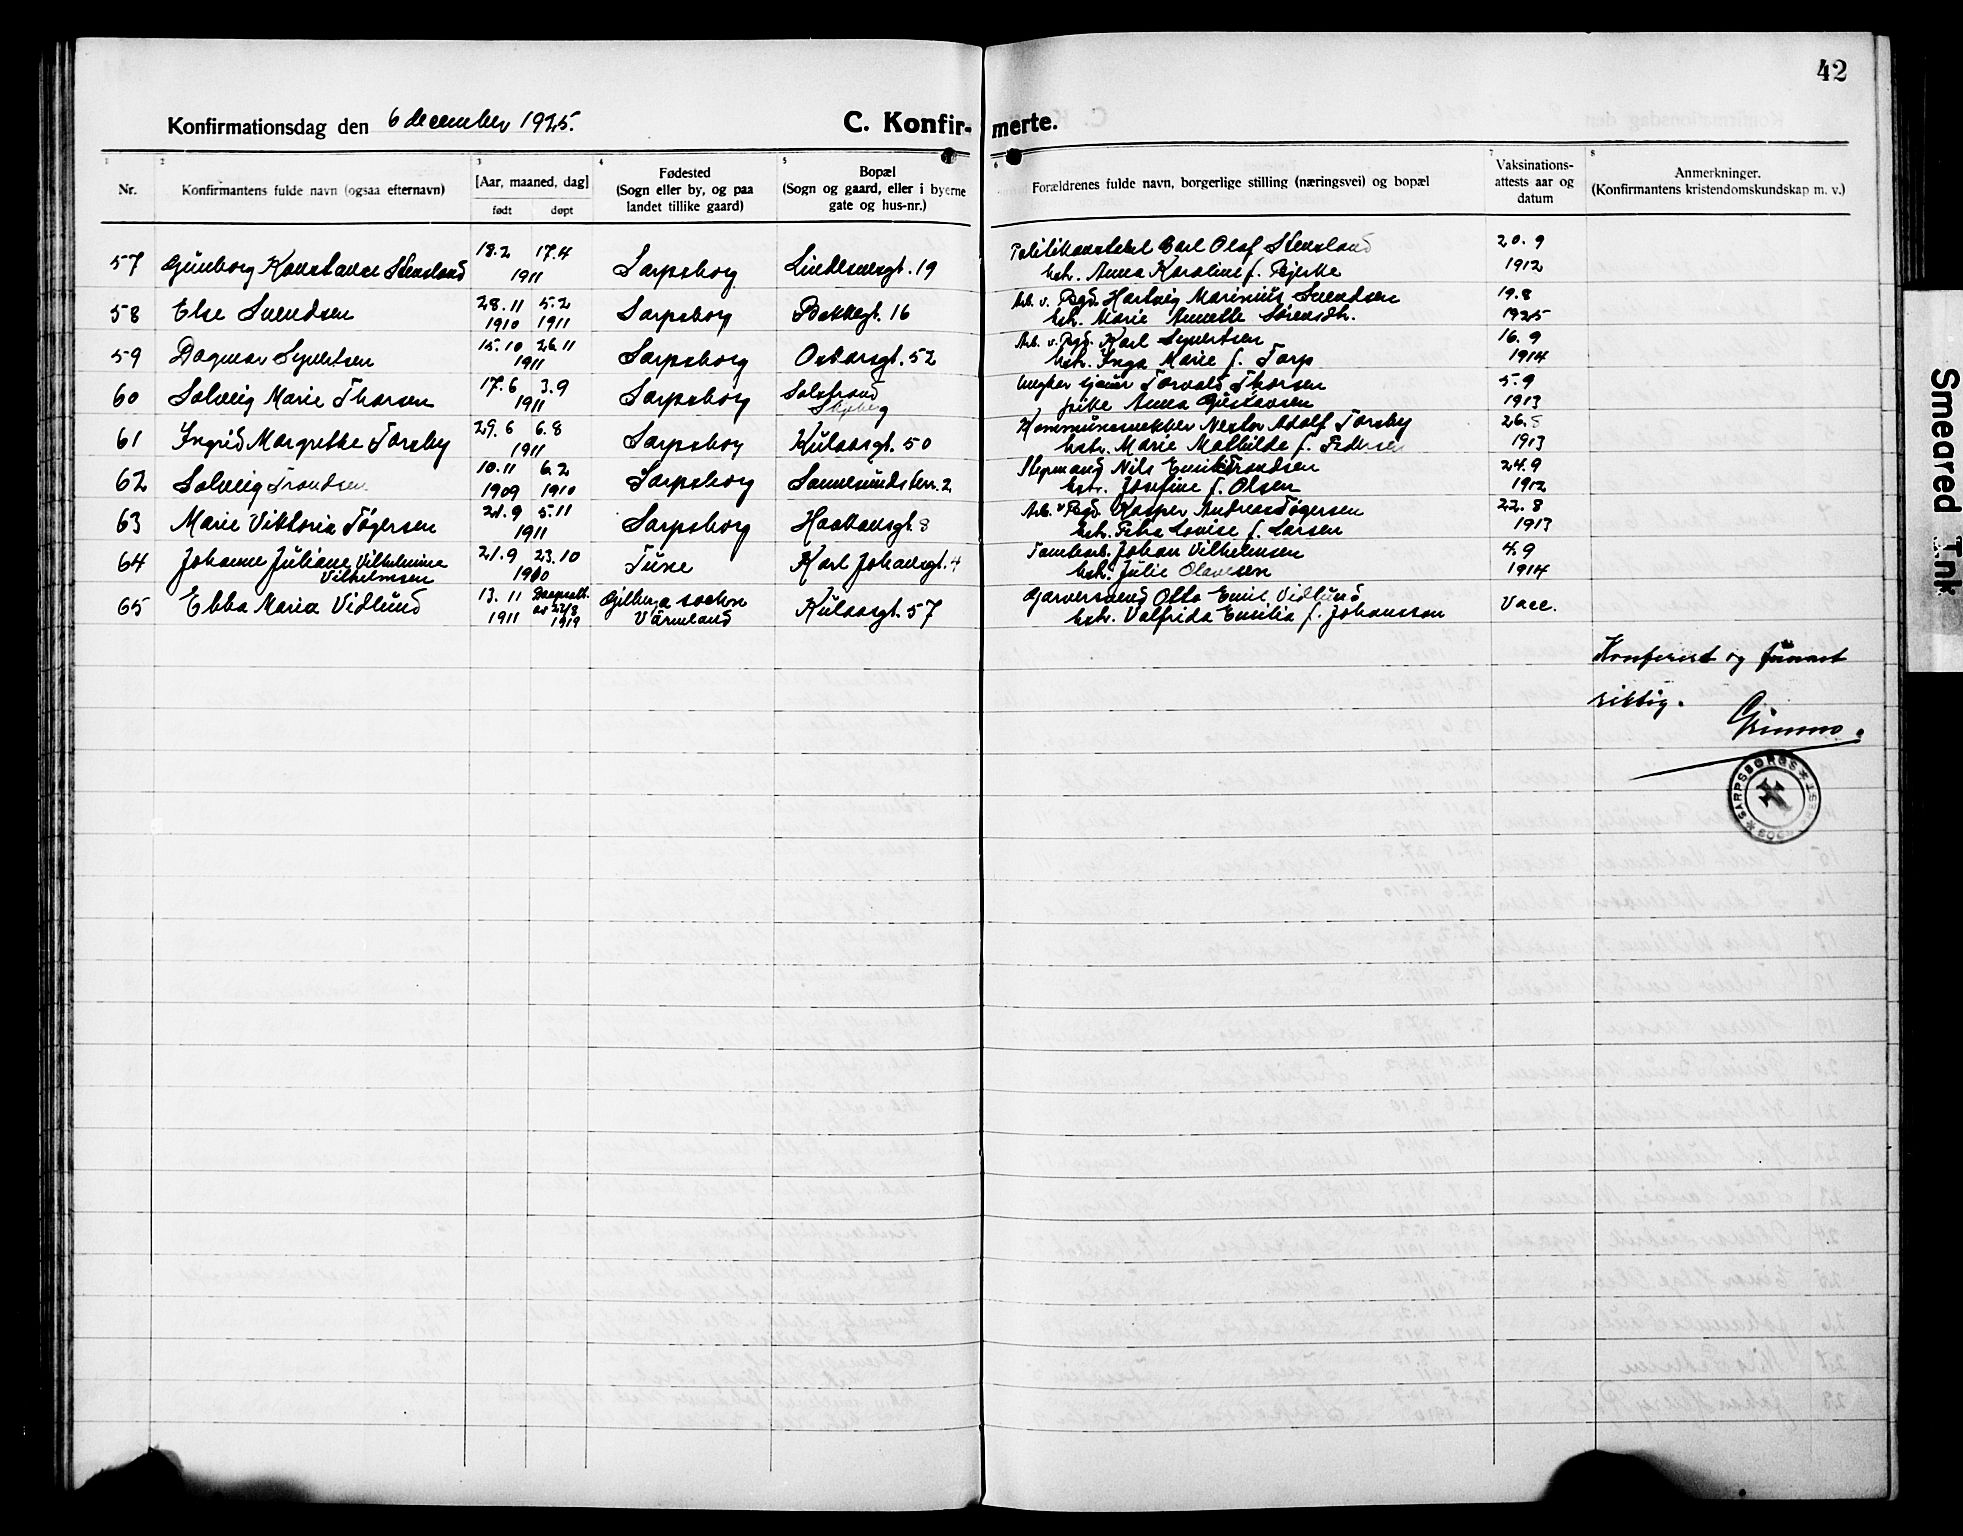 42
Konfirmationsdag den 6 december 1925.
C. Konfir-merte.
1 2 3 4 5 6 7 8
Nr.
Konfirmantens fulde navn (ogsaa efternavn)
[Aar, maaned, dag]
født døpt
Fødested
(Sogn eller by, og paa
landet tillike gaard)
Bopæl
(Sogn og gaard, eller i byerne
gate og hus-nr.)
Forældrenes fulde navn, borgerlige stilling (næringsvei) og bopæl
Vaksinations-
attests aar og
datum
Anmerkninger.
(Konfirmantens kristendomskundskap m. v.)
18.2 17.4 Politikonstabel Carl Olaf Stensland 20.9
57 Gunborg Konstanse Stensland 1911 Sarpsborg Lindemansgt. 19 hstr. Anna Karoline f. Bjerke 1912
28.11 5.2 Arb. v. Bgd. Hartvig Marinius Svendsen 19.8
58 Else Svendsen 1910 1911 Sarpsborg Bakkegt. 16 hstr. Marie Annette Sørensdtr. 1925
15.10 26.11 Arb. v. Bgd. Karl Syvertsen 16.9
59 Dagmar Syvertsen 1911 Sarpsborg Oscarsgt. 52 hstr. Inga Marie f. Tarp 1914
17.6 3.9 Solstrand Torvald Thorsen 5.9
60 Solveig Marie Thorsen 1911 Sarpsborg Skjeberg Anna Gustavsen 1913
29.6 6.8 Nestor Adolf Torsby 26.8
61 Ingrid Margrethe Torsby 1911 Sarpsborg Kulaasgt. 50 hstr. Marie Mathilde f. Pedersen 1913
10.11 6.2 Støpmand Nils Emil Trondsen 24.9
62 Solveig Trondsen 1909 1910 Sarpsborg Sannesundsterr. 2 hstr. Josefine f. Olsen 1912
21.9 5.11 Arb. v. Bgd. Kasper Andreas Tøgersen 22.8
63 Marie Viktoria Tøgersen 1911 Sarpsborg Haakonsgt. 8 hstr. Petra Lovise f. Larsen 1913
21.9 23.10 Tomtearb. Johan Vilhelmsen 4.9
64 Johanne Juliane Vilhelmine
Vilhelmsen 1910 Tune Karl Johansgt. 4 hstr. Julie Olavesen 1914
13.11 Daapsatt. Gillberga socken Garversvend Otto Emil Vidlund
65 Ebba Maria Vidlund av 22/8 Kulaasgt. 57 Vacc.
1911 1919 Värmland hstr. Valfrida Emilia f. Johansson
Konferert og funnet
riktig.
Grimmo.
SARPSBORGS
SOGNEPREST
Smeared Ink